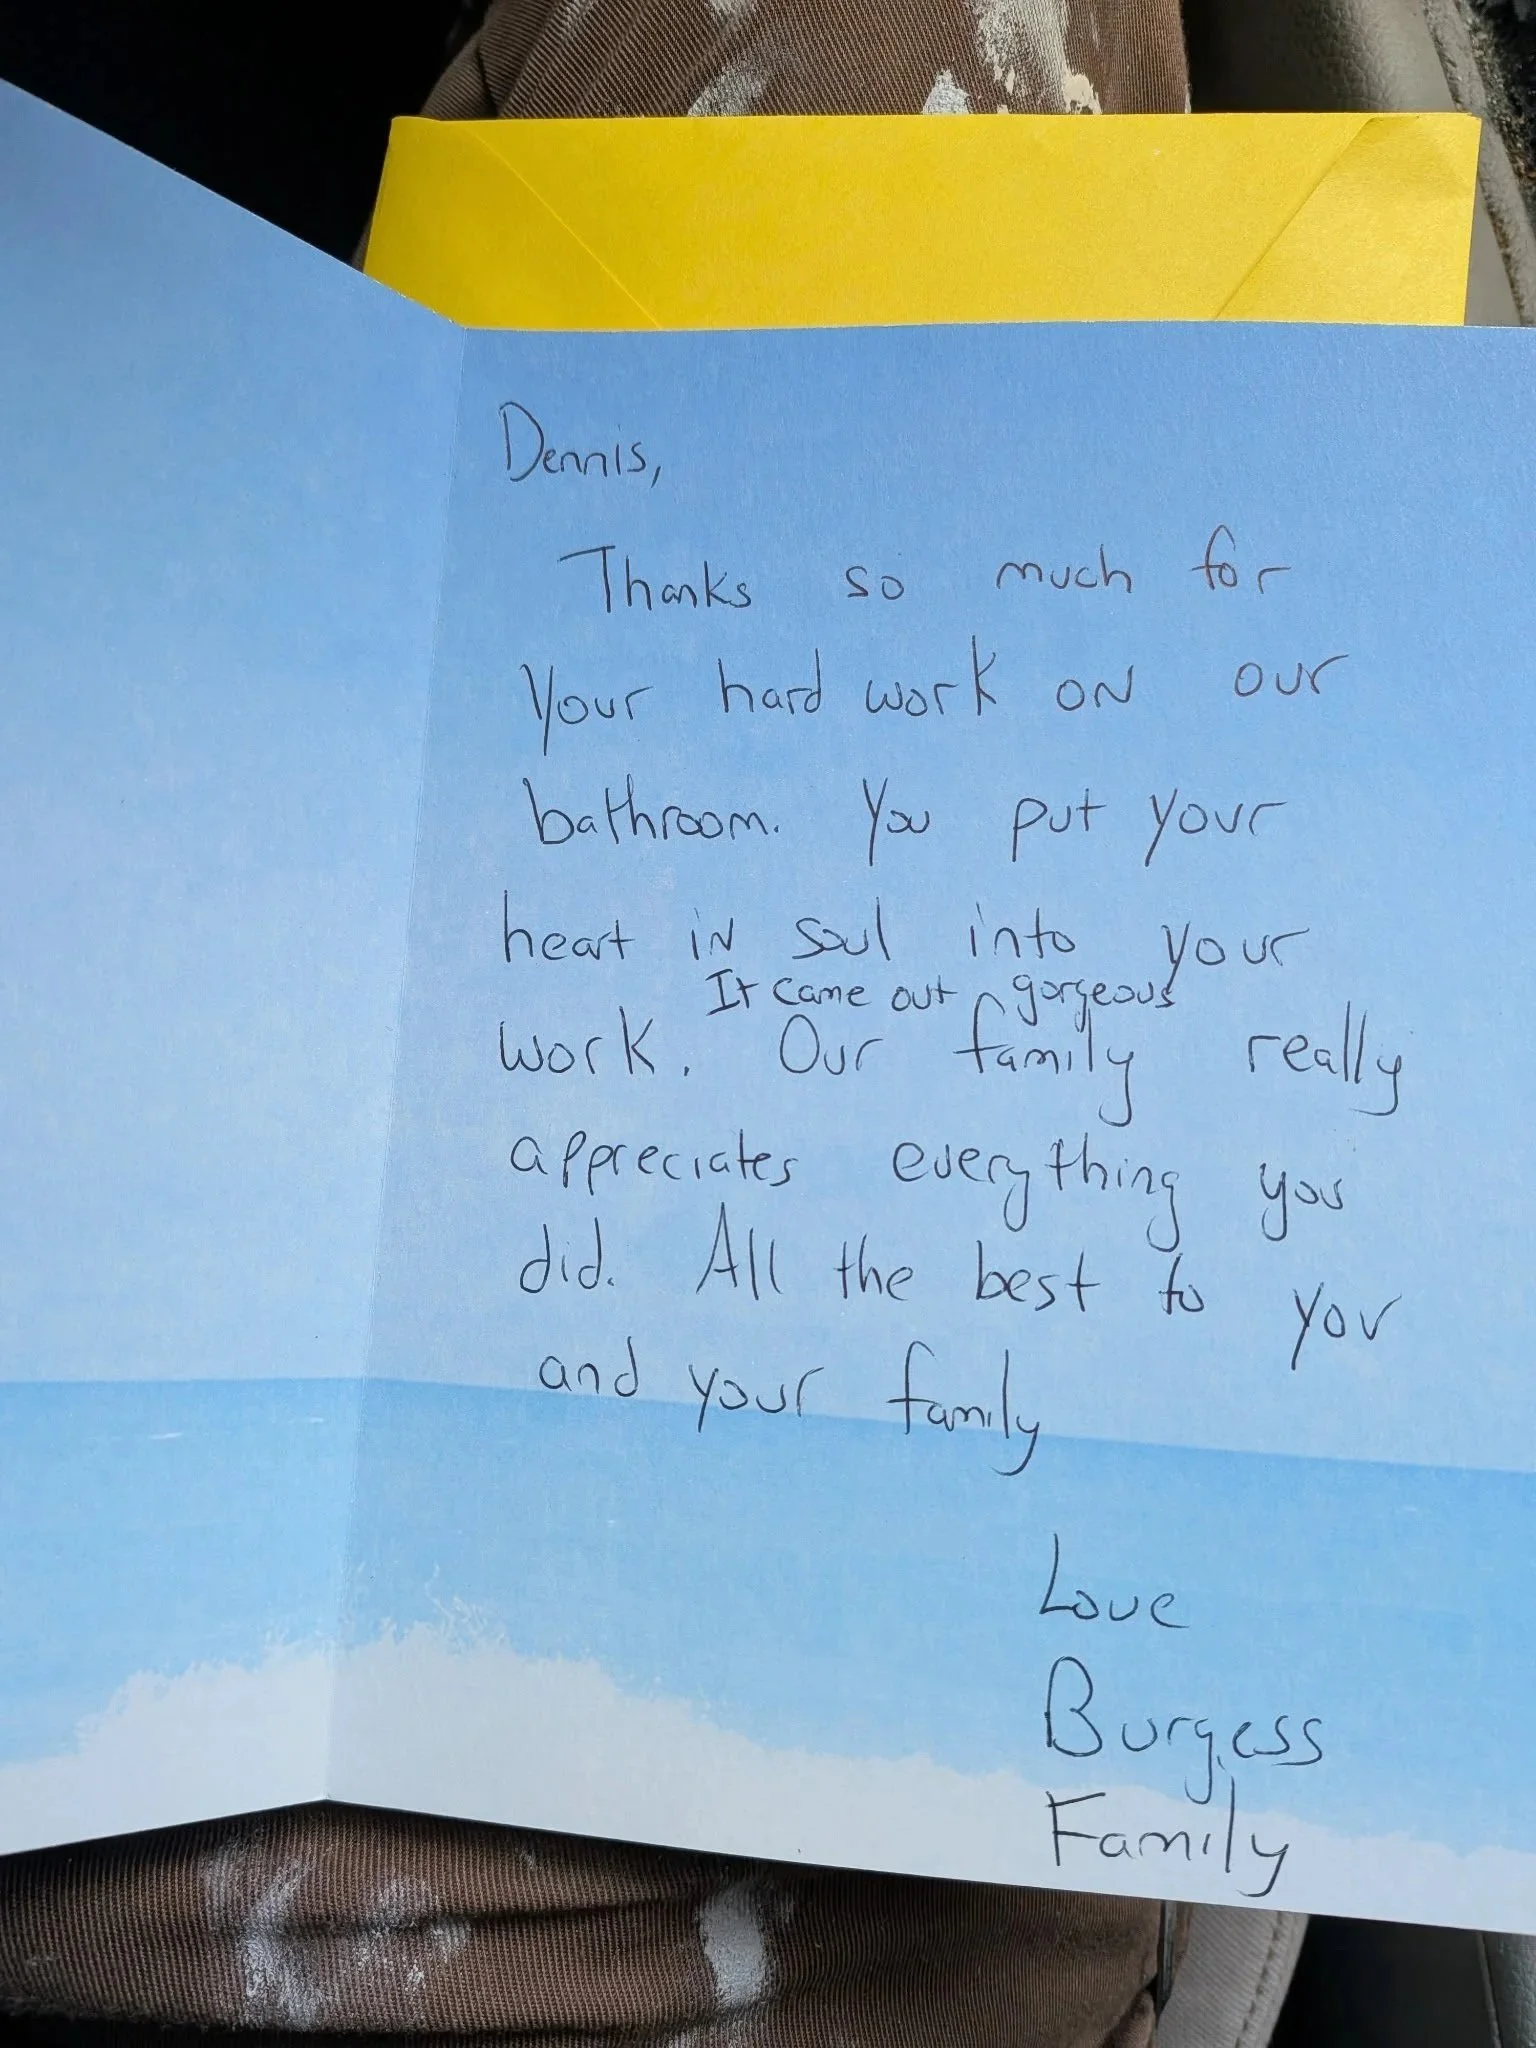 Dennis,
Thanks so much for
your hard work on our
bathroom. You put your
heart in soul into your
It came out gorgeous
work. Our family really
appreciates everything you
did. All the best to you
and your family
Love
Burgess
Family